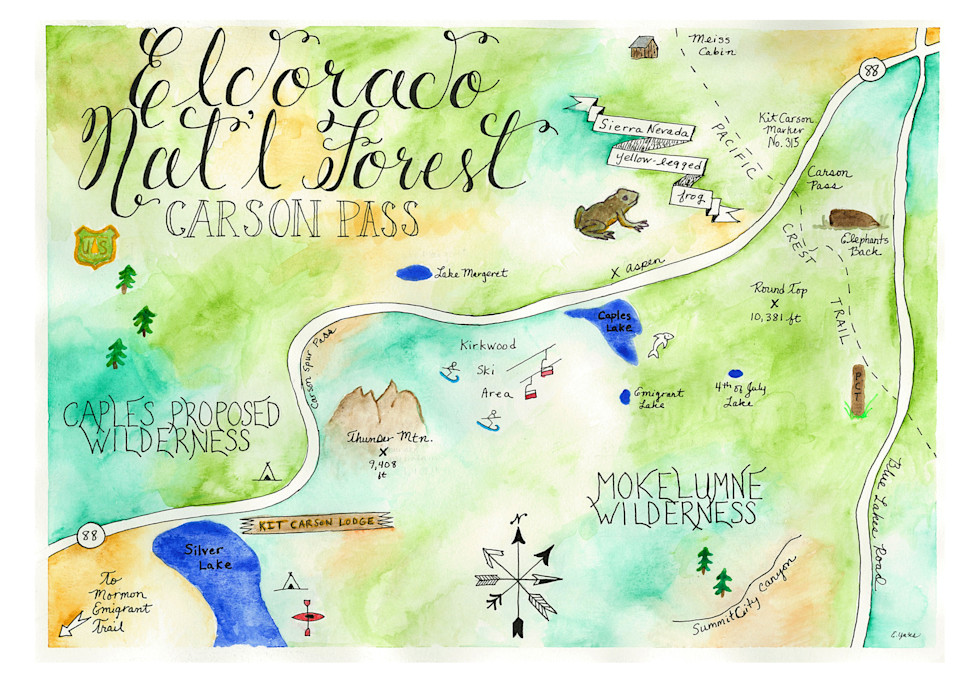 Eldorado
Nat'l Forest
CARSON PASS
US
Meiss
Cabin
88
Sierra Nevada
yellow-legged
frog
PACIFIC
CREST
TRAIL
Kit Carson
Marker
No. 315
Carson
Pass
Elephants
Back
Lake Margaret
X Aspen
Round Top
X
10,381 ft
Caples
Lake
Carson Spur Pass
Kirkwood
Ski
Area
Emigrant
Lake
4th of July
Lake
PCT
CAPLES PROPOSED
WILDERNESS
Thunder Mtn.
X
9,408
ft
MOKELUMNE
WILDERNESS
Blue Lakes Road
88
KIT CARSON LODGE
Silver
Lake
N
To
Mormon
Emigrant
Trail
Summit City Canyon
E. Yates